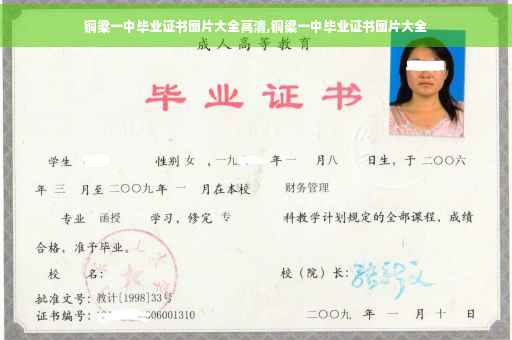 铜梁一中毕业证书图片大全高清,铜梁一中毕业证书图片大全
成人高等教育
毕业证书
学生 性别 女 ,一九 年 一 月八 日生,于 二〇〇六
年 三 月至 二〇〇九 年 一 月在本校 财务管理
专业 函授 学习,修完 专 科教学计划规定的全部课程,成绩
合格,准予毕业。
校 名: 校(院)长:
批准文号:教计[1998]33号
证书编号: 06001310 二〇〇九 年 一 月 十 日